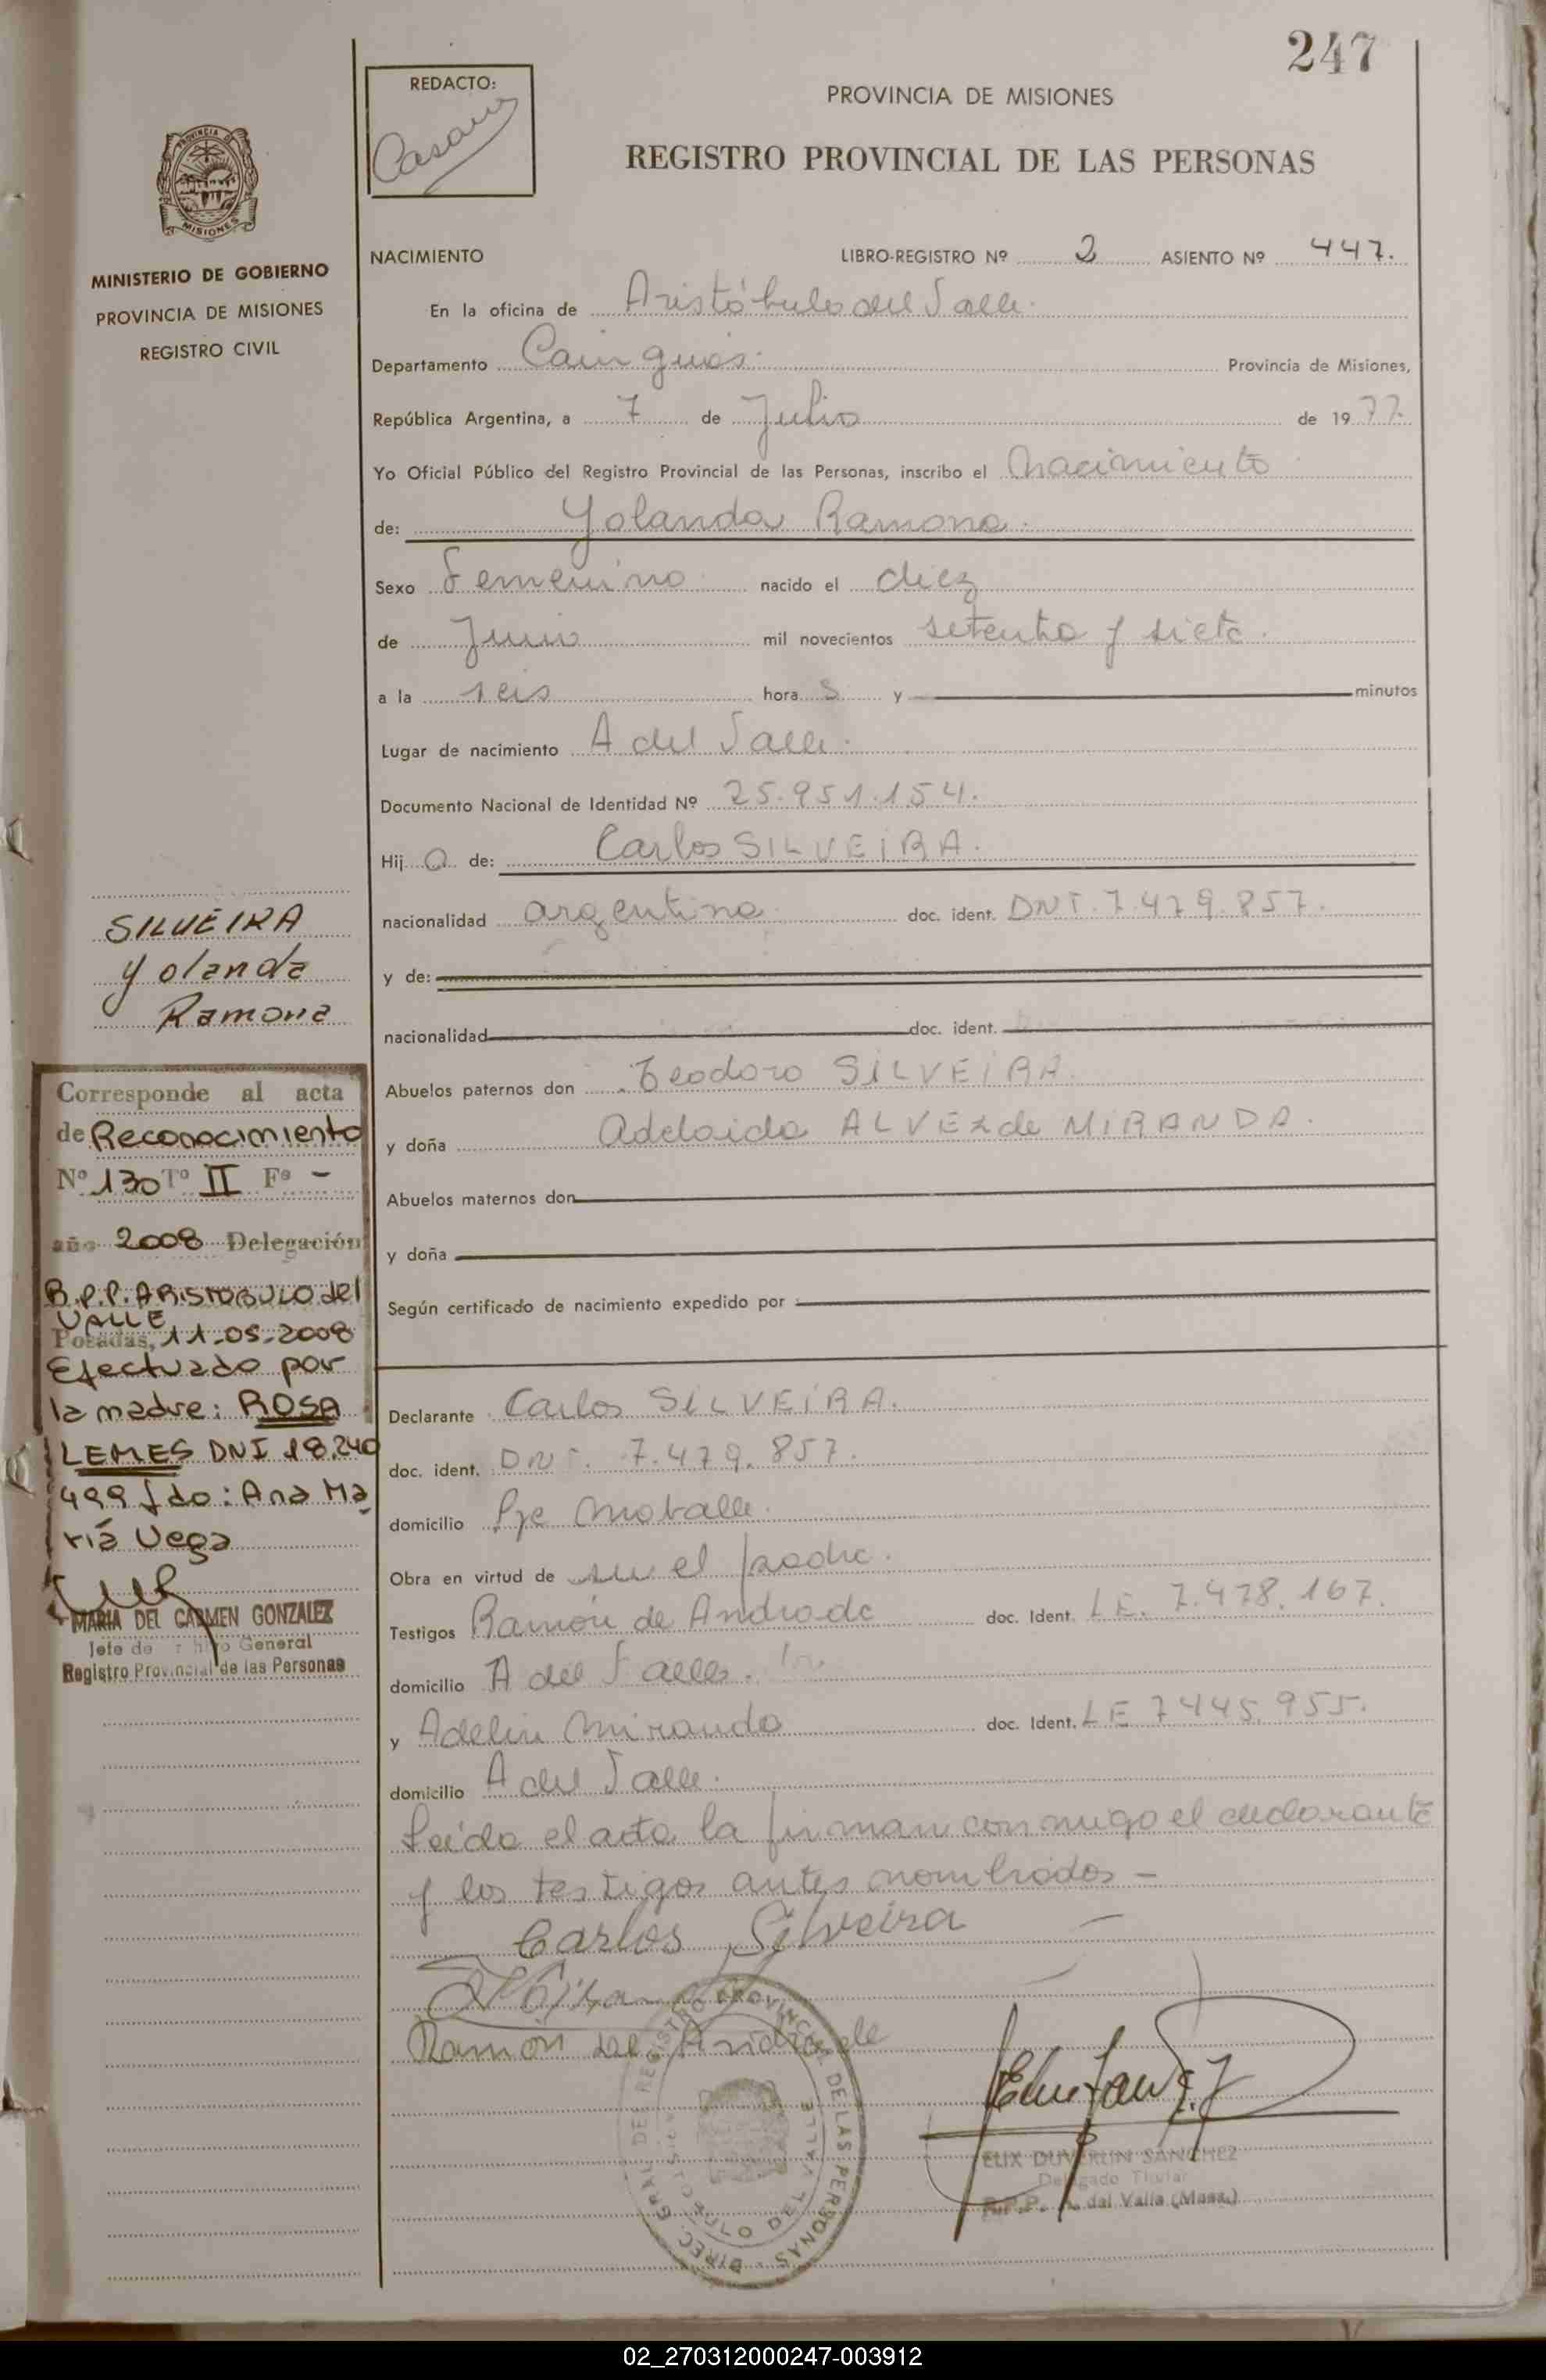 247
REDACTO:
PROVINCIA DE MISIONES
REGISTRO PROVINCIAL DE LAS PERSONAS
PROVINCIA DE
MISIONES
MINISTERIO DE GOBIERNO
PROVINCIA DE MISIONES
REGISTRO CIVIL
NACIMIENTO LIBRO-REGISTRO Nº 2 ASIENTO Nº 447.
En la oficina de Aristóbulo del Valle.
Departamento Cainguás. Provincia de Misiones,
República Argentina, a 7 de Julio de 1977.
Yo Oficial Público del Registro Provincial de las Personas, inscribo el nacimiento
de: Yolanda Ramona.
Sexo Femenino nacido el diez
de Junio mil novecientos setenta y siete.
a la seis hora s y minutos
Lugar de nacimiento A del Valle.
Documento Nacional de Identidad Nº 25.951.154.
Hij a de: Carlos SILVEIRA.
nacionalidad argentina doc. ident. DNI. 7.479.857.
y de:
nacionalidad doc. ident.
Abuelos paternos don Teodoro SILVEIRA.
y doña Adelaida ALVEZ de MIRANDA.
Abuelos maternos don
y doña
Según certificado de nacimiento expedido por
SILVEIRA
Yolanda
Ramona
Corresponde al acta
de Reconocimiento
Nº 130 Tº II Fº -
año 2008 Delegación
B.P.P. ARISTOBULO del
VALLE
Posadas, 11-05-2008
Efectuado por
la madre: ROSA
LEMES DNI 18.240
499 fdo: Ana Ma
ría Vega
MARIA DEL CARMEN GONZALEZ
Jefe de General
Registro Provincial de las Personas
Declarante Carlos SILVEIRA.
doc. ident. DNI. 7.479.857.
domicilio
Obra en virtud de ser el padre.
Testigos Ramón de Andrade doc. Ident. LE. 7.478.167.
domicilio A del Valle.
y Adelin Miranda doc. Ident. LE 7445.955.
domicilio A del Valle.
Leída el acta la firman conmigo el declarante
y los testigos antes nombrados -
Carlos Silveira
Ramón de Andrade
DIREC. GRAL. DEL REGISTRO PROVINCIAL DE LAS PERSONAS
ARISTOBULO DEL VALLE
SANCHEZ
Delegado Titular
del Valle (Mnes.)
02_270312000247-003912